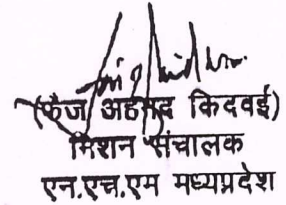 (फैज अहमद किदवई)
मिशन संचालक
एन.एच.एम मध्यप्रदेश